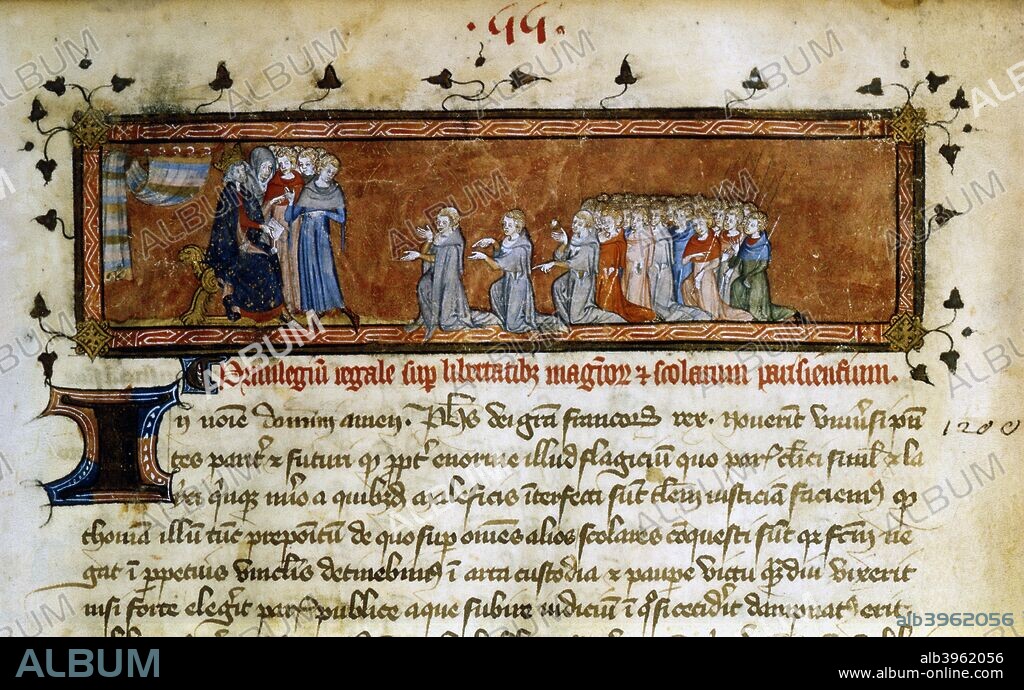 Privilegiū regale sup libertatibꝫ magr̄oꝝ ⁊ scolarium parisiensium.
In noīe domini amen. Phs dei grā francoꝝ rex. Noverint universi p̄sen
tes parit̄ ⁊ futuri qꝫ ppt̄ enorme illud flagiciū quo par clīci simul ⁊ la
ici qnqꝫ nūo a quibꝰdā maleficis īterfecti sūt tlem iusticiā faciemꝰ qꝫ
thomā illū tūc prepositū de quo sup om̄es alios scolares cōquesti sūt qr fcm̄ ne
gat ī ppetuis vinclis detinebimꝰ ī arta custodia ⁊ paupe victu qꝫdiu vixerit
nisi forte elegit par publice aque subire iudiciū ī qo si ceciderit dampnatꝰ erit.
1200
ALBUM
alb3962056
alb3962056
www.album-online.com